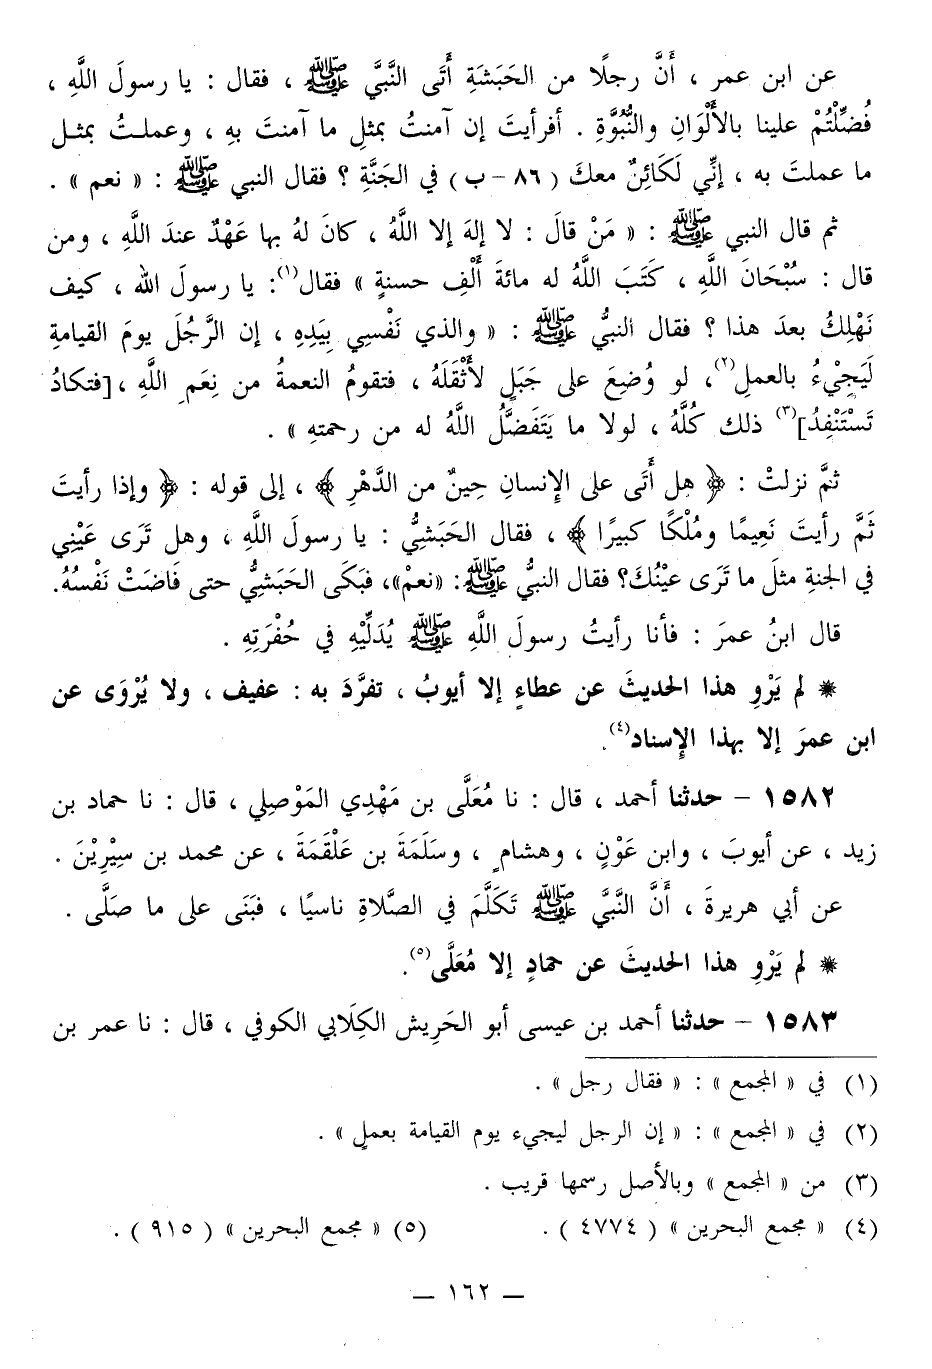 عن ابن عمر ، أَنَّ رجلًا من الحَبَشَةِ أَتَى النَّبيَّ ﷺ ، فقال : يا رسولَ اللَّهِ ،
فُضِّلْتُمْ علينا بالأَلْوَانِ والنُّبُوَّةِ . أفرأيتَ إن آمنتُ بمثلِ ما آمنتَ بهِ ، وعملـتُ بمثـل
ما عملتَ به ، إنِّي لَكَائِنٌ معكَ ( ٨٦ – ب ) في الجَنَّةِ ؟ فقال النبي ﷺ : « نعم » .
ثم قال النبي ﷺ : « مَنْ قالَ : لا إلهَ إلا اللَّهُ ، كانَ لهُ بها عَهْدٌ عندَ اللَّهِ ، ومن
قال : سُبْحَانَ اللَّهِ ، كَتَبَ اللَّهُ له مائةَ أَلْفِ حسنةٍ » فقال(١): يا رسولَ الله ، كيف
نَهْلِكُ بعدَ هذا ؟ فقال النبيُّ ﷺ : « والذي نَفْسِي بِيَدِهِ ، إن الرَّجُلَ يومَ القيامةِ
لَيَجِيْءُ بالعملِ(٢)، لو وُضِعَ على جَبَلٍ لأَثْقَلَهُ ، فتقومُ النعمةُ من نِعَمِ اللَّهِ ،[فتكادُ
تَسْتَنْفِدُ](٣) ذلك كُلَّهُ ، لولا ما يَتَفَضَّلُ اللَّهُ له من رحمتهِ » .
ثمَّ نزلتْ : ﴿ هل أَتَى على الإنسانِ حِينٌ من الدَّهْرِ ﴾ ، إلى قوله : ﴿ وإذا رأيتَ
ثَمَّ رأيتَ نَعِيمًا ومُلْكًا كبيرًا ﴾ ، فقال الحَبَشيُّ : يا رسولَ اللَّهِ ، وهل تَرَى عَيْنِي
في الجنةِ مثلَ ما تَرَى عيْنُكَ؟ فقال النبيُّ ﷺ: «نعمْ»، فبَكَى الحَبَشيُّ حتى فَاضَتْ نَفْسُهُ.
قال ابنُ عمرَ : فأنا رأيتُ رسولَ اللَّهِ ﷺ يُدَلِّيْهِ في حُفْرَتِهِ .
* لم يَرْوِ هذا الحديثَ عن عطاءٍ إلا أيوبُ ، تفرَّدَ به : عفيف ، ولا يُرْوَى عن
ابن عمرَ إلا بهذا الإسناد(٤).
١٥٨٢ – حدثنا أحمد ، قال : نا مُعَلَّى بن مَهْدِي المَوْصِلِي ، قال : نا حماد بن
زيد ، عن أيوبَ ، وابن عَوْنٍ ، وهشامٍ ، وسَلَمَةَ بن عَلْقَمَةَ ، عن محمد بن سِيْرِيْنَ .
عن أبي هريرةَ ، أَنَّ النَّبيَّ ﷺ تَكَلَّمَ في الصَّلاةِ ناسيًا ، فبَنَى على ما صَلَّى .
* لم يَرْوِ هذا الحديثَ عن حمادٍ إلا مُعَلَّى(٥).
١٥٨٣ – حدثنا أحمد بن عيسى أبو الحَرِيش الكِلَابي الكوفي ، قال : نا عمر بن
(١) في « المجمع » : « فقال رجل » .
(٢) في « المجمع » : « إن الرجل ليجيء يوم القيامة بعملٍ » .
(٣) من « المجمع » وبالأصل رسمها قريب .
(٤) « مجمع البحرين » ( ٤٧٧٤ ) . (٥) « مجمع البحرين » ( ٩١٥ ) .
— ١٦٢ —